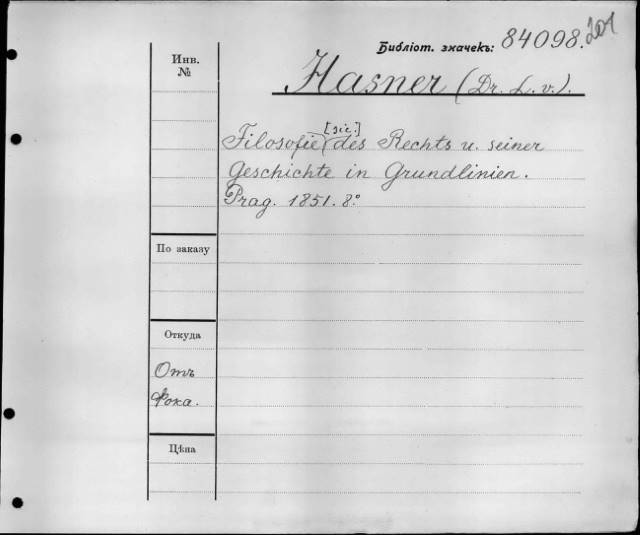 Библіот. значекъ: 84098.
Инв.
№
Hasner (Dr. L. v.).
[sic.]
Filosofie des Rechts u. seiner
Geschichte in Grundlinien.
Prag. 1851. 8º
По заказу
Откуда
Отъ
Фока.
Цѣна